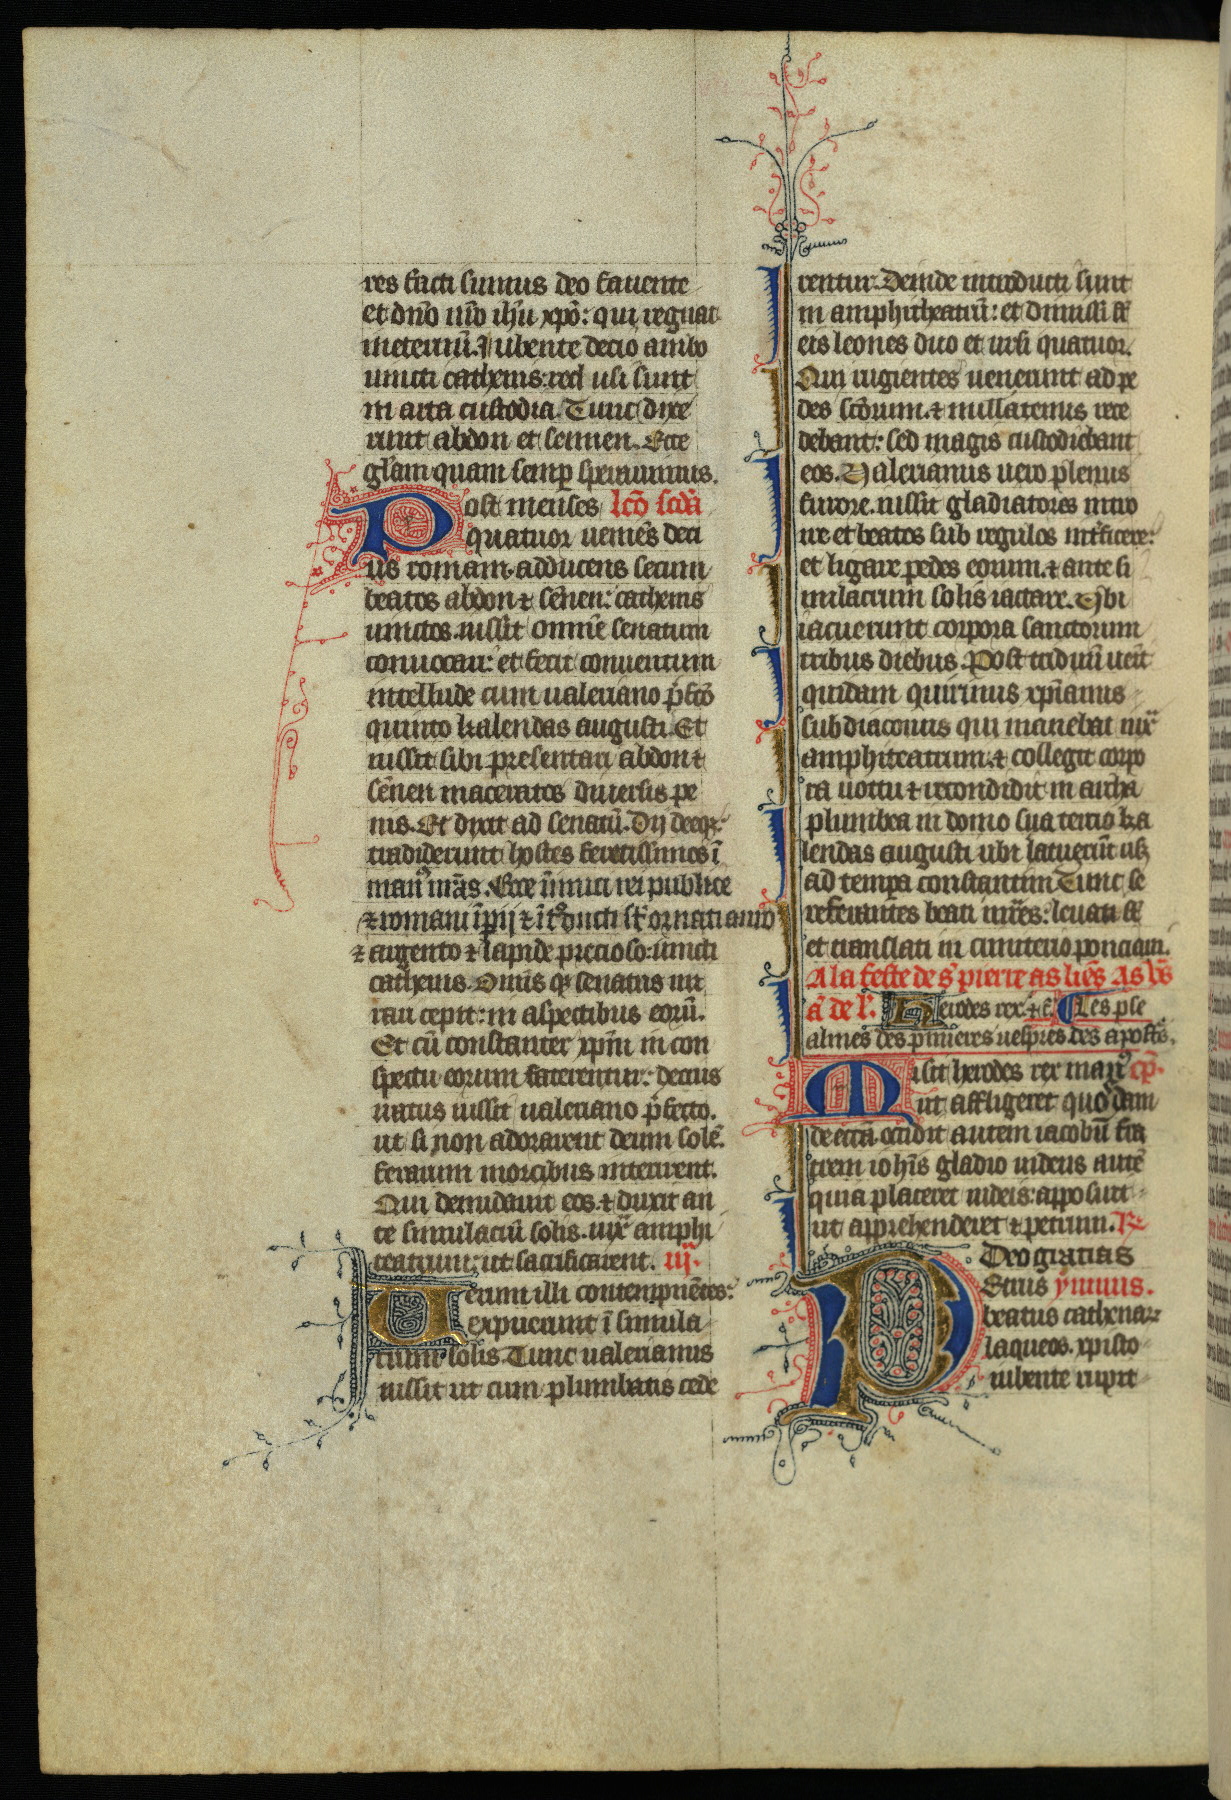 res facti sumus deo fauente
et dño nr̃o ihũ xpõ: qui regnat
in eternũ. Jubente decio ambo
uincti cathenis: red usi sunt
in arta custodia. Tunc dixe
runt abdon et sennen. Ecce
glãm quam semp sperauimus.
Post menses lcõ scdã
quatuor ueniẽs deci
us romam. adducens secum
beatos abdon ⁊ sẽnen: cathenis
uinctos. iussit omnẽ senatum
conuocari: et fecit conuentum
intellude cum ualeriano p̃fcõ
quinto kalendas augusti. Et
iussit sibi presentari abdon ⁊
sẽnen maceratos diuersis pe
nis. Et dixit ad senatũ. Dij deeqꝫ
tradiderunt hostes ferocissimos ĩ
man9 nr̃as. Ecce inimici rei publice
⁊ romani ĩpij ⁊ ĩtᵒducti st̃ ornati auro
⁊ argento ⁊ lapide precioso: uincti
cathenis. Omĩs qꝫ senatus mi
rari cepit: in aspectibus eorũ.
Et cũ constanter xpm̃ in con
spectu eorum faterentur: decius
iratus iussit ualeriano p̃fecto.
ut si non adorarent deum solẽ.
ferarum morcibus interirent.
Qui denudauit eos ⁊ duxit an
te simulacrũ solis. iux̃ amphi
teatrum: ut sacrificarent. iij.
Uerum illi contempnẽtes:
expuerunt ĩ simula
crum solis. Tunc ualerianus
iussit ut cum plumbatis cede
rentur. Deinde introducti sunt
in amphitheatrũ: et dimissi st̃
eis leones duo et ursi quatuor.
Qui rugientes uenerunt ad pe
des scõrum. ⁊ nullatenus rece
debant: sed magis custodiebant
eos. Valerianus uero plenus
furore. iussit gladiatores intro
ire et beatos sub regulos int̃ficere:
et ligare pedes eorum. ⁊ ante si
mulacrum solis iactare. Vbi
iacuerunt corpora sanctorum
tribus diebus. Post triduũ ueñit
quidam quirinus xpĩanus
subdiaconus qui manebat iux̃
amphiteatrum. ⁊ collegit corpo
ra noctu ⁊ recondidit in archa
plumbea in domo sua tercio ka
lendas augusti ubi latuerũt usqꝫ
ad tempa constantini. Tunc se
referantes beati mr̃es: leuati st̃
et translati in cimiterio ponciani.
A la feste de s' pierre as liẽs. As v̾s
ã de l'. Herodes rex. ⁊c̃. Les pse
almes des pimieres uespres des apostˢ.
Misit herodes rex man9 cp̃.
ut affligeret quosdam
de ecc̃a. occidit autem iacobũ fra
trem ioh̃is gladio uidens autẽ
quia placeret iudeis: apposuit
ut apprehenderet ⁊ petrum. R̃.
Deo gratias
Petrus ymnus.
beatus cathenarꝝ
laqueos. xpisto
iubente rupit